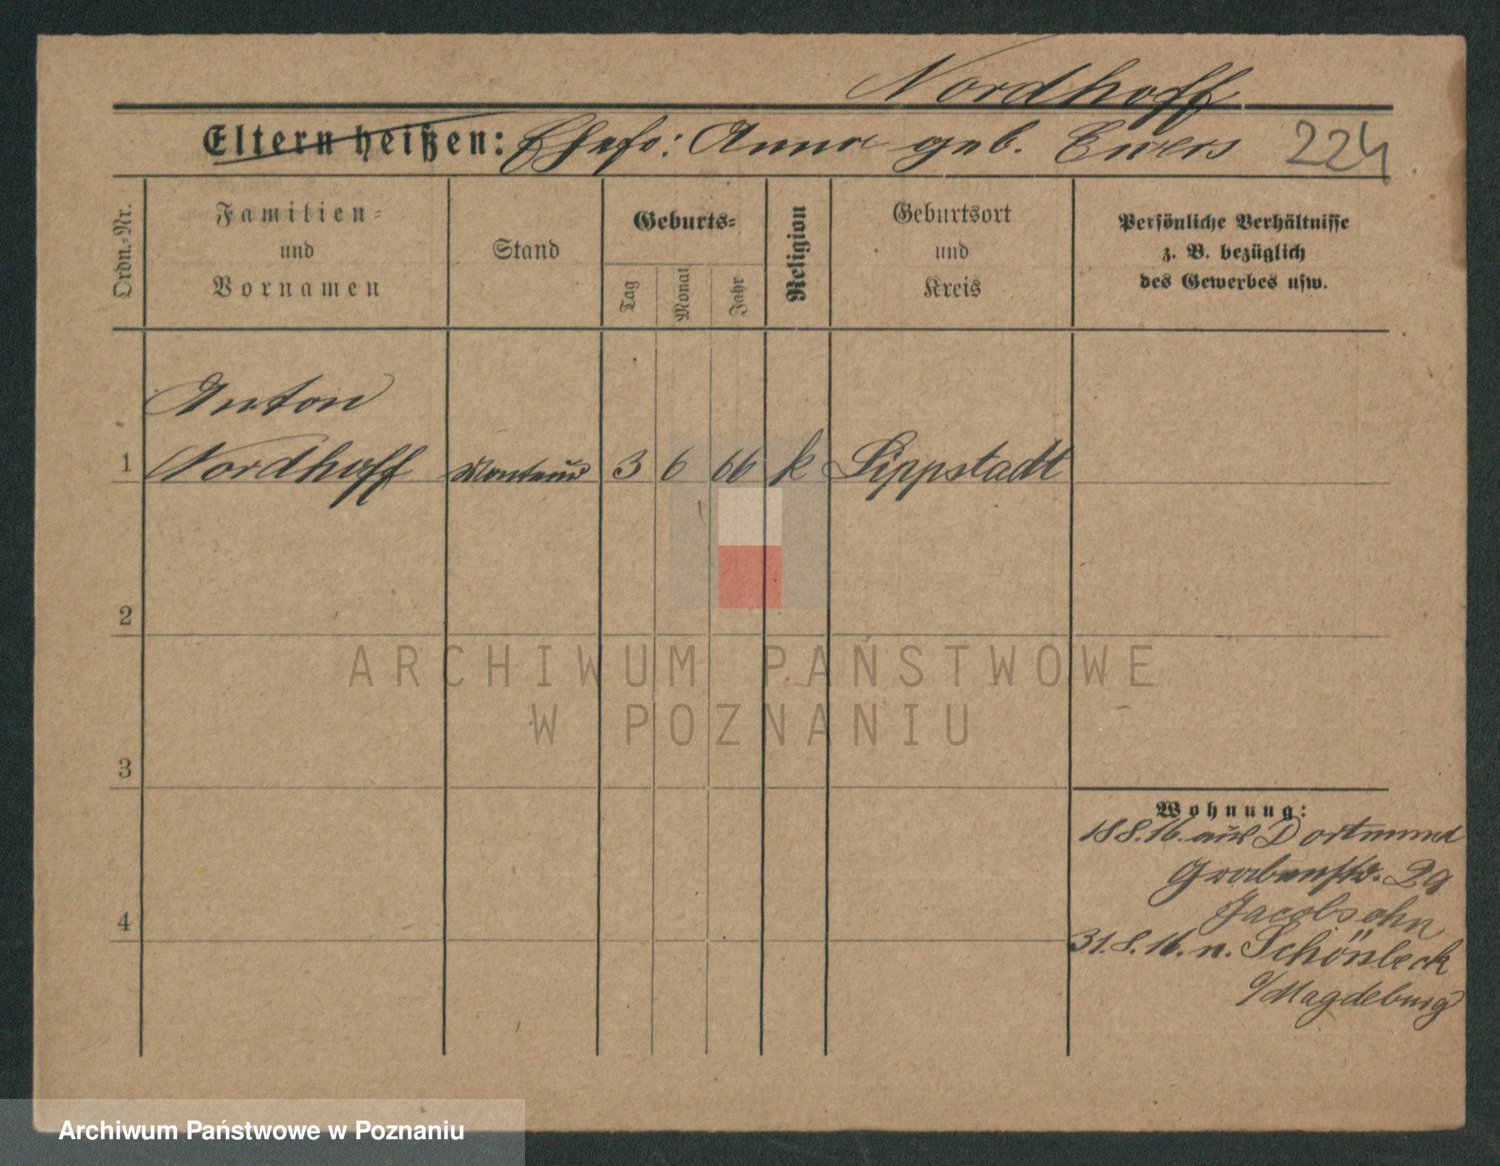 Nordhoff
Eltern heißen: Ehefr: Anna geb. Ewers 224
Ordn.-Nr.
Familien-
und
Vornamen
Stand
Geburts-
Tag
Monat
Jahr
Religion
Geburtsort
und
Kreis
Persönliche Verhältnisse
z. B. bezüglich
des Gewerbes usw.
Anton
1 Nordhoff Monteur 3 6 66 k Lippstadt
2
ARCHIWUM PAŃSTWOWE
W POZNANIU
3
Wohnung:
18.8.16. aus Dortmund
Grabenstr. 29
Jacobsohn
4
31.8.16. n. Schönbeck
a/Magdeburg
Archiwum Państwowe w Poznaniu